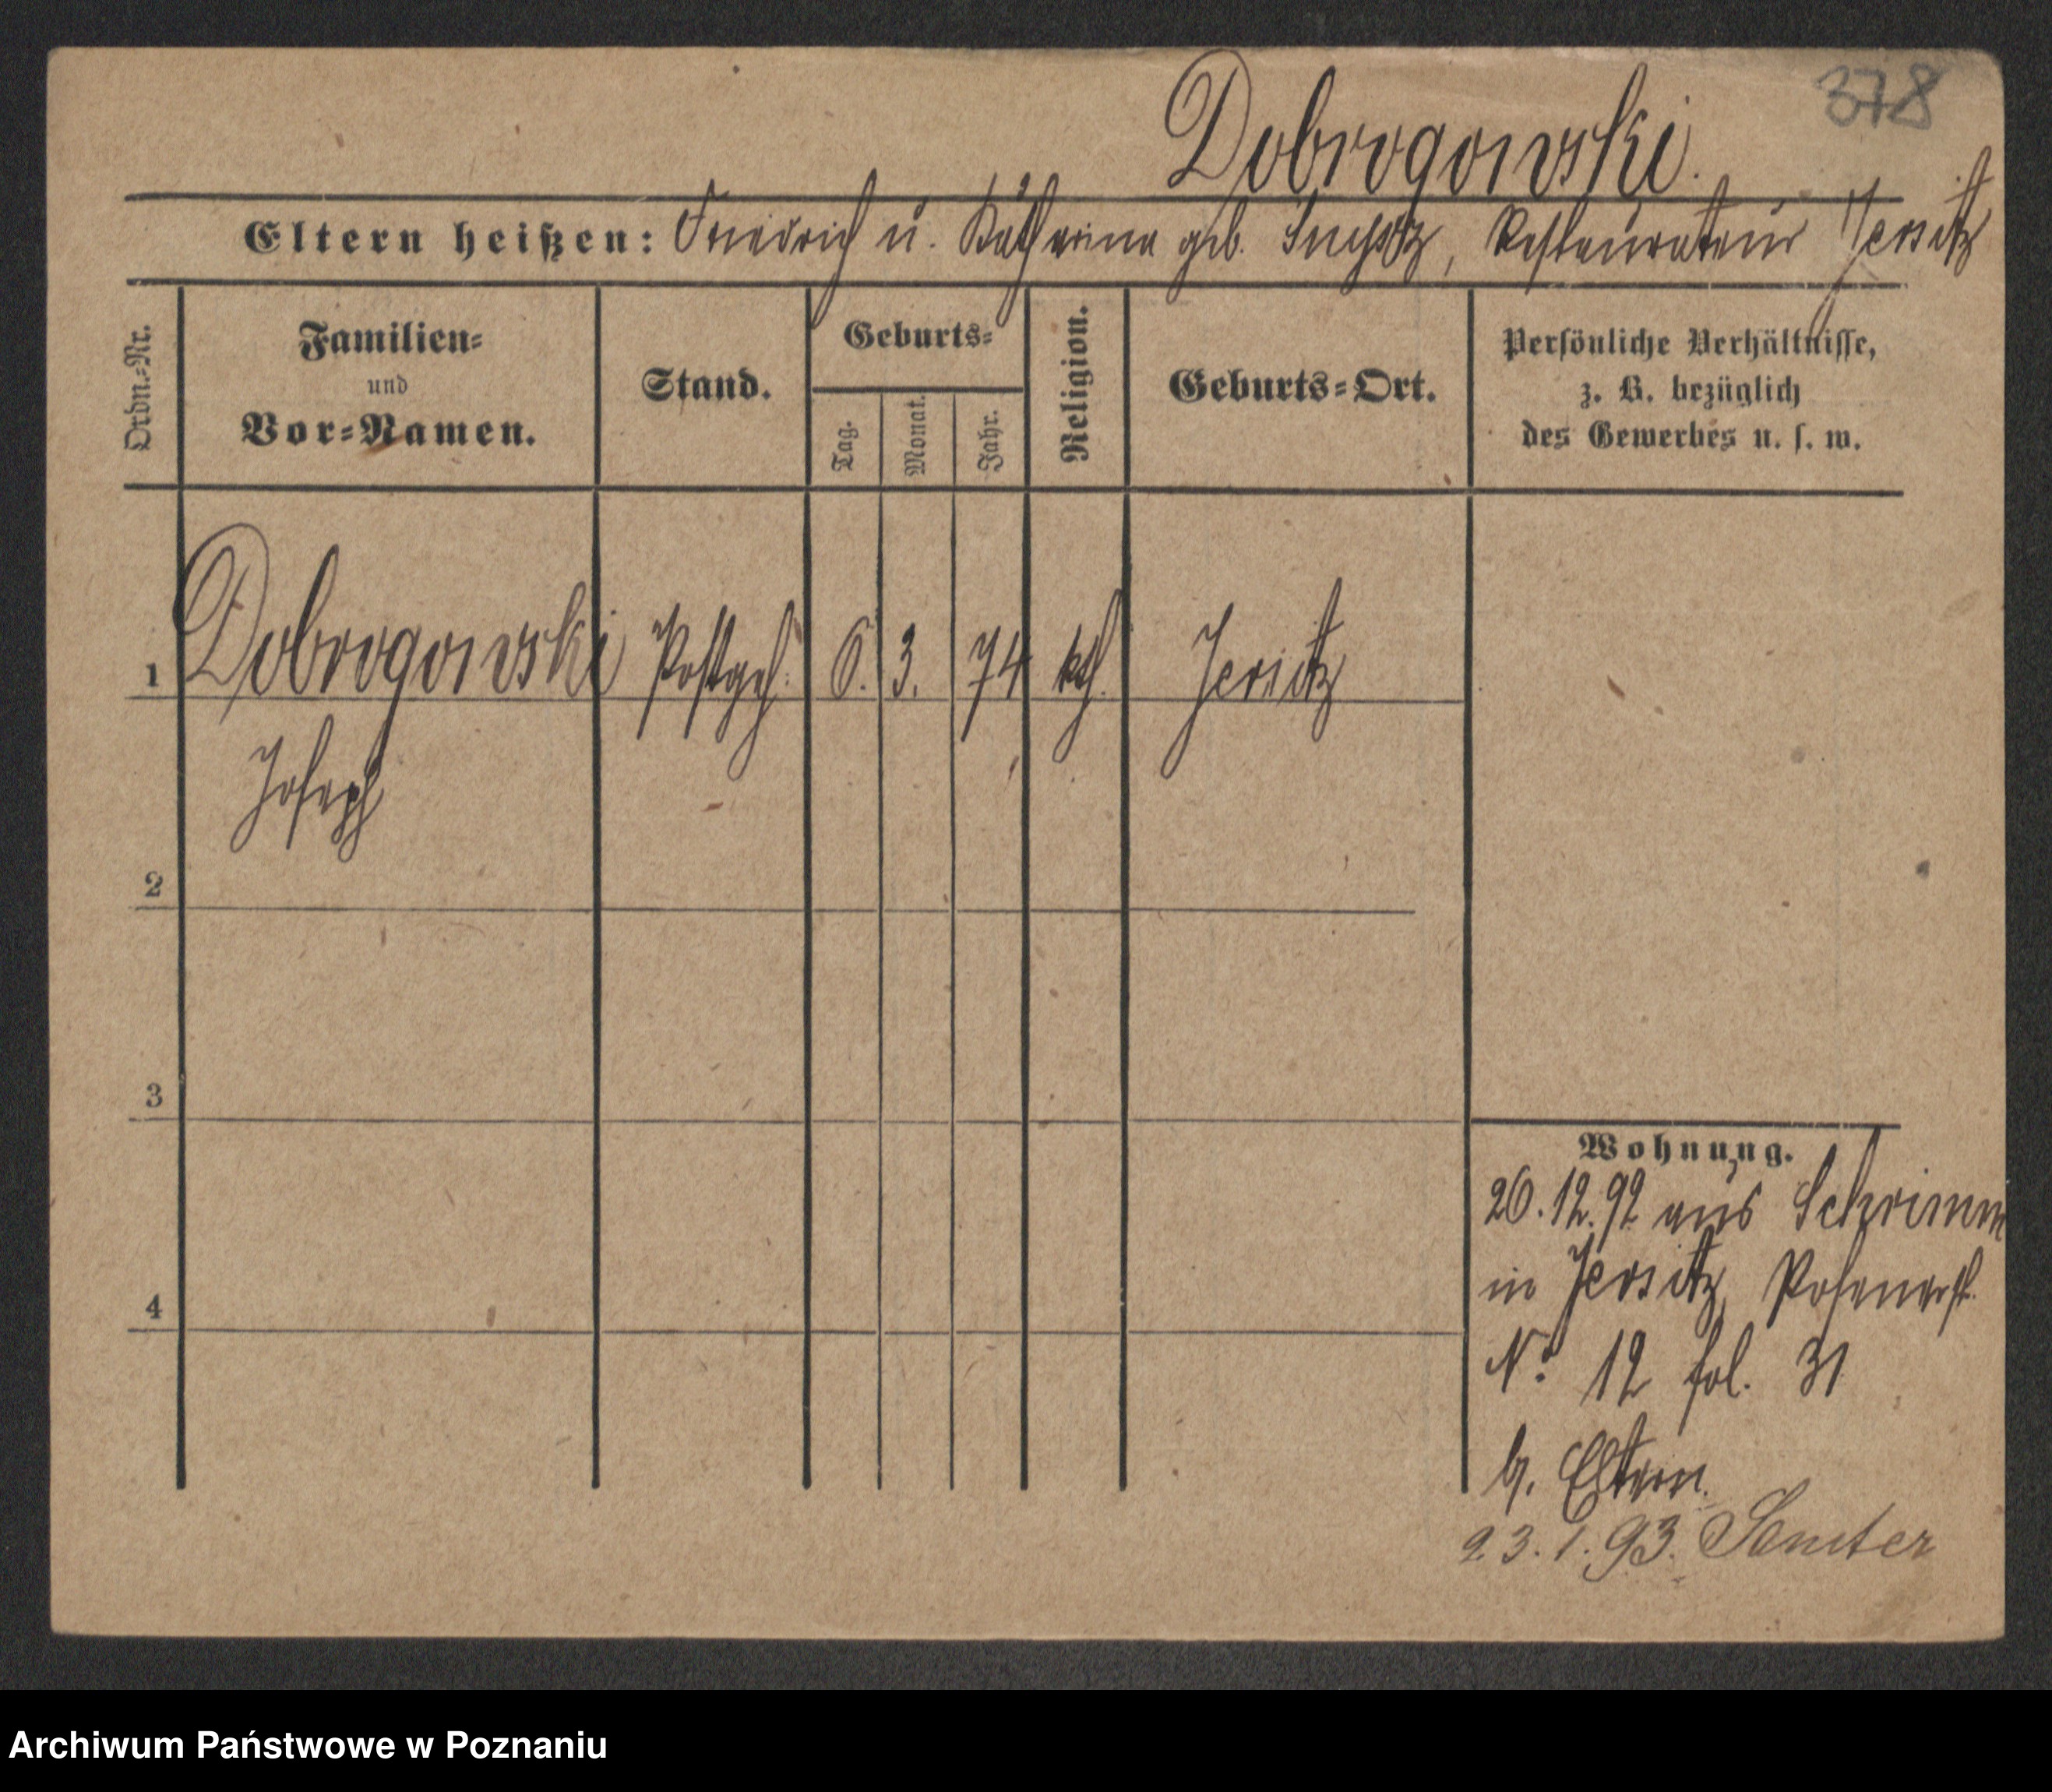 378
Dobrogowski.
Eltern heißen: Friedrich u. Katharina geb. , Restaurateur Jersitz
Ordn.-Nr.
Familien-
und
Vor-Namen.
Stand.
Geburts-
Tag.
Monat.
Jahr.
Religion.
Geburts-Ort.
Persönliche Verhältnisse,
z. B. bezüglich
des Gewerbes u. s. w.
1 Dobrogowski Postgeh. 6. 3. 74 kth. Jersitz
Joseph
2
3
4
Wohnung.
20.12.92 aus Schrimm
in Jersitz, Posenerst.
No 12 fol. 31
b. Eltern.
23.1.93. Samter
Archiwum Państwowe w Poznaniu